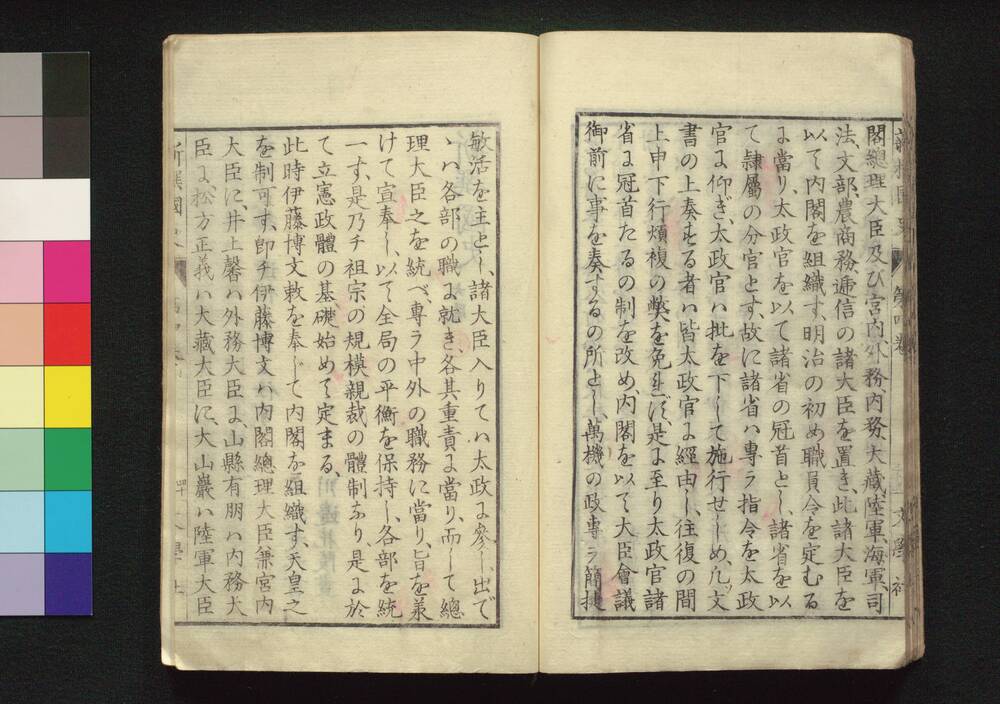 閣總理大臣及び宮内、外務、内務、大藏、陸軍、海軍、司
法、文部、農商務、遞信の諸大臣を置き、此諸大臣を
以て内閣を組織す、明治の初め職員令を定むる
に當り、太政官を以て諸省の冠首とし、諸省を以
て隷屬の分官とす、故に諸省ハ專ラ指令を太政
官に仰ぎ、太政官ハ批を下して施行せしめ、凡ソ文
書の上奏する者ハ皆太政官に經由し、往復の間
上申下行煩複の獘を免れず、是に至り太政官諸
省に冠首たるの制を改め、内閣を以て大臣會議
御前に事を奏するの所とし、萬機の政專ラ簡捷
敏活を主とし、諸大臣入りてハ太政に參し、出で
ゝハ各部の職に就き、各其重責に當り、而して總
理大臣之を統べ、專ラ中外の職務に當り、旨を承
けて宣奉し、以て全局の平衡を保持し、各部を統
一す、是乃チ祖宗の規模親裁の體制なり、是に於
て立憲政體の基礎始めて定まる、
此時伊藤博文敕を奉じて内閣を組織す、天皇之
を制可す、卽チ伊藤博文ハ内閣總理大臣兼宮内
大臣に、井上馨ハ外務大臣に、山縣有朋ハ内務大
臣に、松方正義ハ大藏大臣に、大山巖ハ陸軍大臣